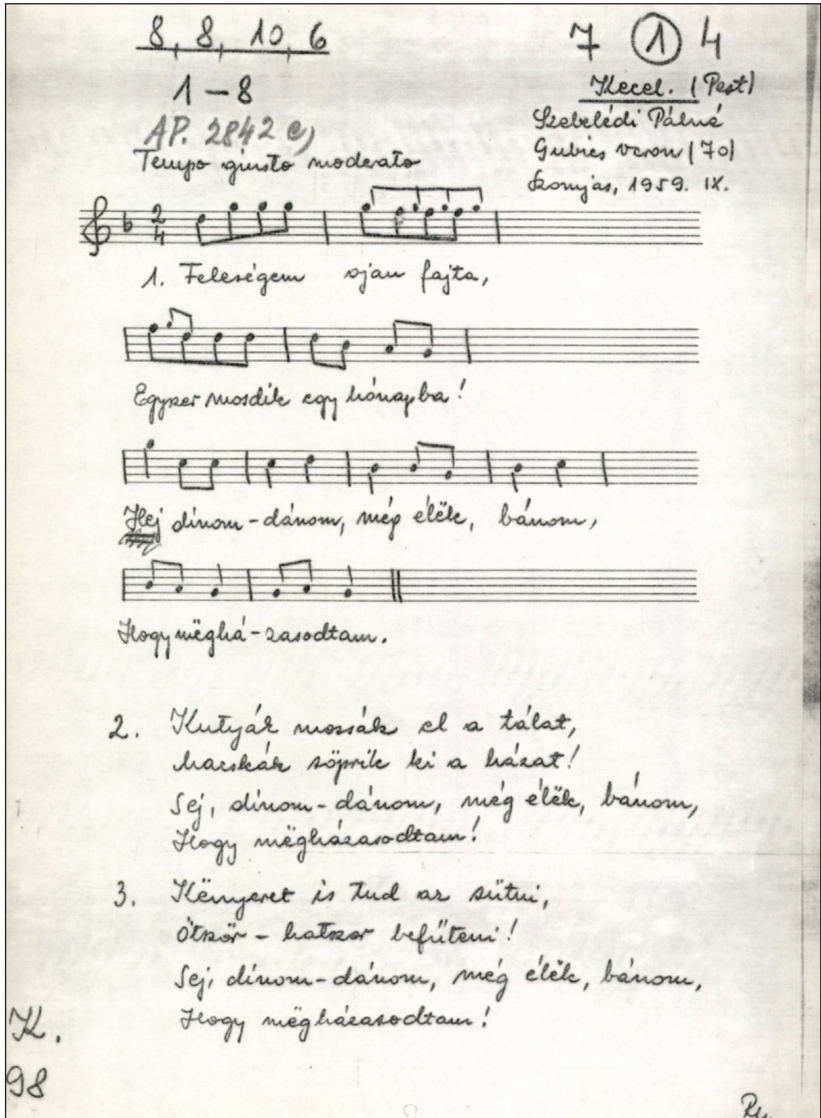 8, 8, 10, 6
7 ① 4
1 – 8
Kecel. (Pest)
AP. 2842 e)
Szebelédi Pálné
Tempo giusto moderato
Gubics Veron (70)
1959. IX.
2
4
1. Feleségem ojan fajta,
Egyszer mosdik egy hónapba!
Hej dínom-dánom, még élëk, bánom,
Hogy mëghá-zasodtam.
2. Kutyák mossák el a tálat,
Macskák söprik ki a házat!
Sej, dínom-dánom, még élëk, bánom,
Hogy mëgházasodtam!
3. Kënyeret is tud az sütni,
Ötször - hatszor befűteni!
Sej, dínom-dánom, még élëk, bánom,
Hogy mëgházasodtam!
K.
98